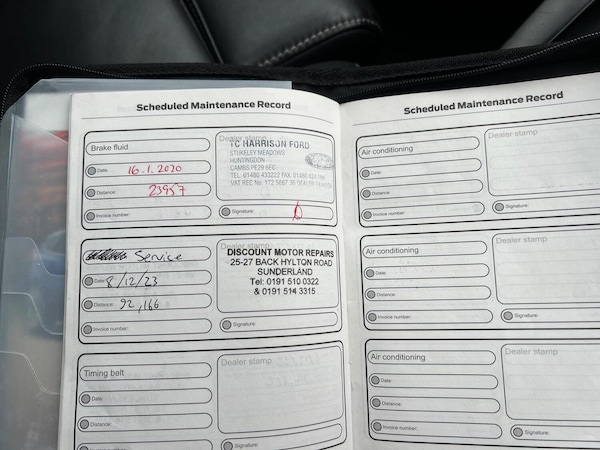 Scheduled Maintenance Record
Brake fluid
Date: 16.1.2020
Distance: 23957
Invoice number:
Dealer stamp
TC HARRISON FORD
STUKELEY MEADOWS
HUNTINGDON
CAMBS PE29 6EC
TEL: 01480 433222 FAX: 01480
VAT REG No: 172 5667 36
Ford
Signature:
Service
Date: 8/12/23
Distance: 92,166
Invoice number:
Dealer stamp
DISCOUNT MOTOR REPAIRS
25-27 BACK HYLTON ROAD
SUNDERLAND
Tel: 0191 510 0322
& 0191 514 3315
Signature:
Timing belt
Date:
Distance:
Invoice number:
Dealer stamp
Signature:
Scheduled Maintenance Record
Air conditioning
Date:
Distance:
Invoice number:
Dealer stamp
Signature:
Air conditioning
Date:
Distance:
Invoice number:
Dealer stamp
Signature:
Air conditioning
Date:
Distance:
Invoice number:
Dealer stamp
Signature: